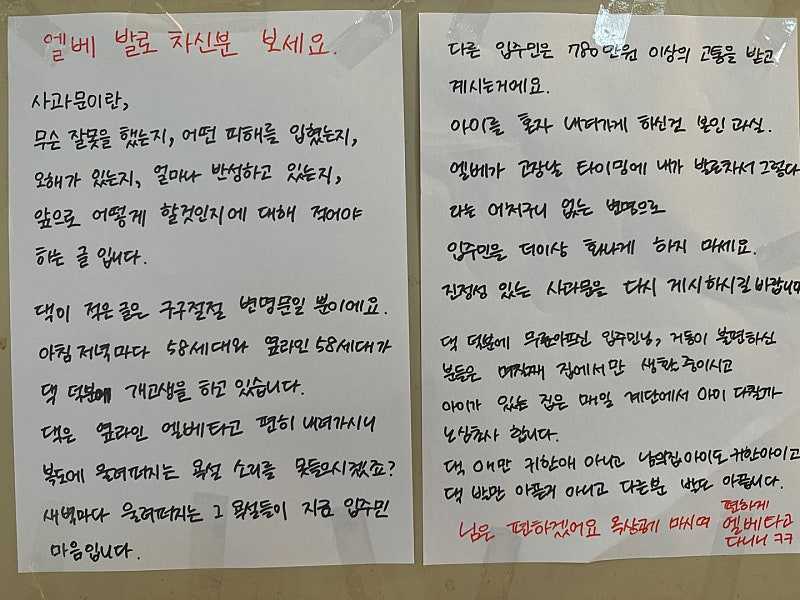 엘베 발로 차신분 보세요.
사과문이란,
무슨 잘못을 했는지, 어떤 피해를 입혔는지,
오해가 있는지, 얼마나 반성하고 있는지,
앞으로 어떻게 할것인지에 대해 적어야
하는 글 입니다.
댁이 적은 글은 구구절절 변명문일 뿐이에요.
아침저녁마다 58세대와 옆라인 58세대가
댁 덕분에 개고생을 하고 있습니다.
댁은 옆라인 엘베타고 편히 내려가시니
복도에 울려퍼지는 욕설 소리를 못들으시겠죠?
새벽마다 울려퍼지는 그 욕설들이 지금 입주민
마음입니다.
다른 입주민은 780만원 이상의 고통을 받고
계시는거에요.
아이를 혼자 내려가게 하신건 본인 과실.
엘베가 고장날 타이밍에 내가 발로차서 그렇다
라는 어처구니 없는 변명으로
입주민을 더이상 화나게 하지 마세요.
진정성 있는 사과문을 다시 게시하시길 바랍니다
댁 덕분에 무릎아프신 입주민님, 거동이 불편하신
분들은 며칠째 집에서만 생활중이시고
아이가 있는 집은 매일 계단에서 아이 다칠까
노심초사 합니다.
댁 애만 귀한애 아니고 남의집 아이도 귀한아이고
댁 발만 아픈게 아니고 다른분 발도 아픕니다.
님은 편하겠어요 옥상공기 마시며 편하게
엘베타고
다니니 ㅋㅋ